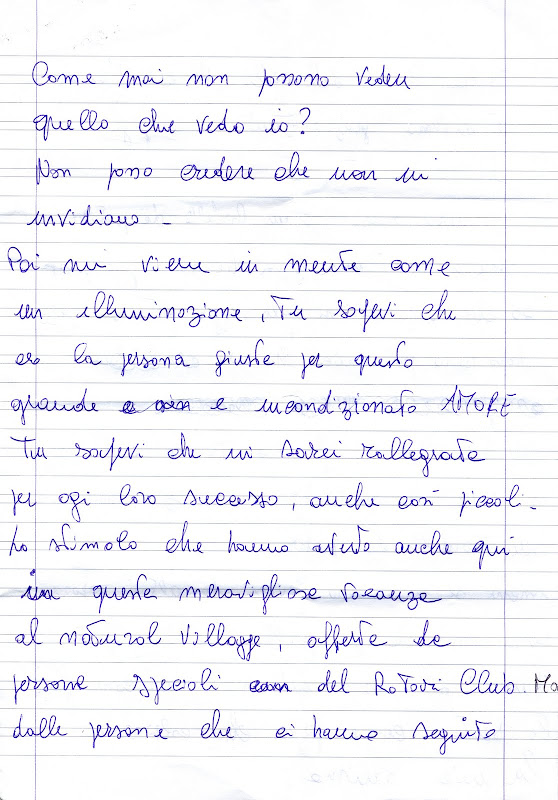 Come mai non possono vedere
quello che vedo io?
Non posso credere che non mi
invidiano -
Poi mi viene in mente come
un illuminazione, Tu sapevi che
ero la persona giusta per questo
grande e incondizionato AMORE
Tu sapevi che mi sarei rallegrata
per ogi loro successo, anche così piccoli -
Lo stimolo che hanno avuto anche qui
in questa meravigliosa vacanza
al natural Village, offerta da
persone speciali del Rotari Club. Ma
dalle persone che ci hanno seguito